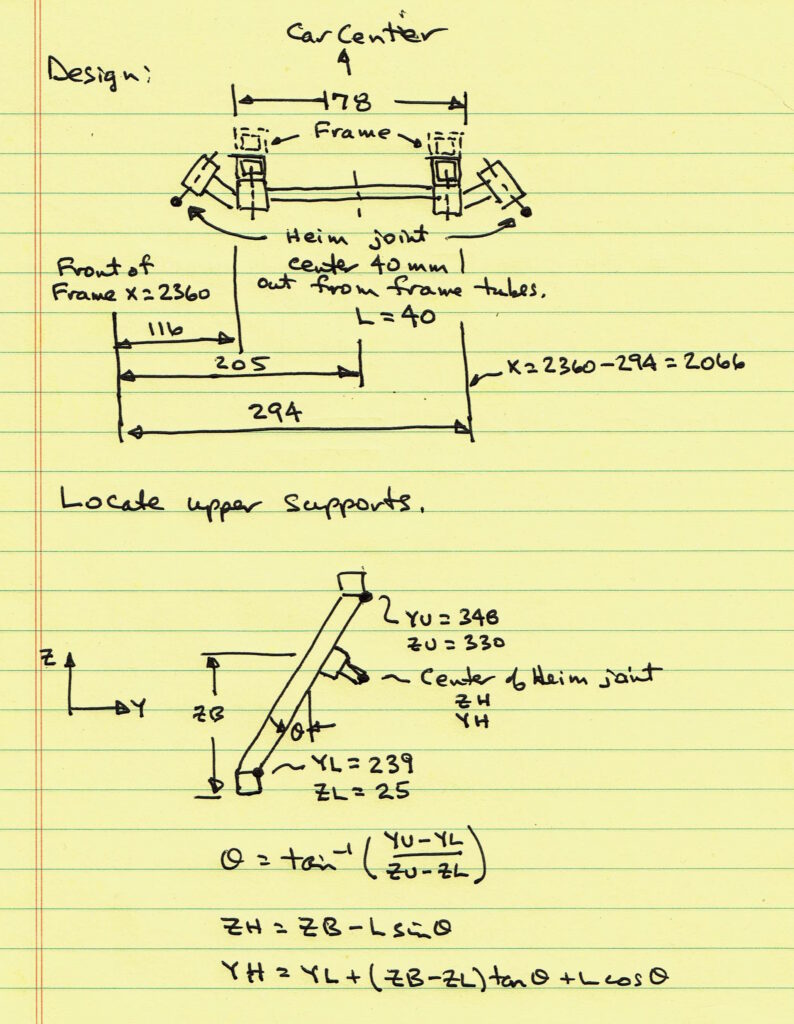 Car Center
Design:
178
Frame
Heim joint
center 40 mm
out from frame tubes.
L = 40
Front of
Frame X = 2360
116
205
X = 2360 - 294 = 2066
294
Locate upper supports.
YU = 348
ZU = 330
Z
Center of Heim joint
ZH
YH
Y
ZB
θ
YL = 239
ZL = 25
θ = tan⁻¹ (YU - YL / ZU - ZL)
ZH = ZB - L sin θ
YH = YL + (ZB - ZL) tan θ + L cos θ